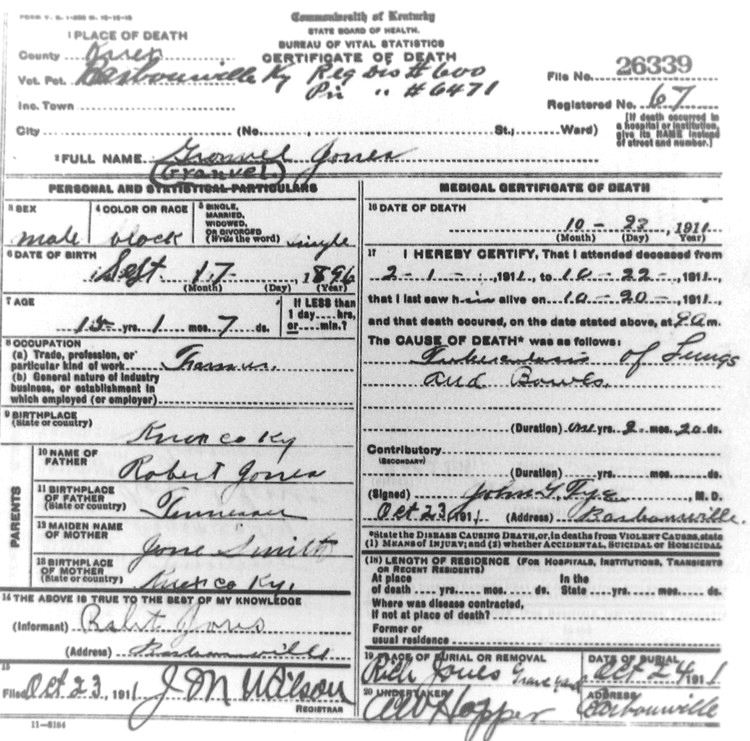 Commonwealth of Kentucky
STATE BOARD OF HEALTH.
BUREAU OF VITAL STATISTICS
CERTIFICATE OF DEATH
1 PLACE OF DEATH
County Knox
Vot. Pct. Barbourville Ky Reg Dis # 600
Pri " # 6471
File No. 26339
Inc. Town
Registered No. 67
City (No. , St.; Ward)
[If death occurred in a hospital or institution, give its NAME instead of street and number.]
2 FULL NAME Granvel Jones
(Granvel.)
PERSONAL AND STATISTICAL PARTICULARS
3 SEX
male
4 COLOR OR RACE
black
5 SINGLE, MARRIED, WIDOWED, OR DIVORCED (Write the word)
single
6 DATE OF BIRTH
Sept 17 , 1896
(Month) (Day) (Year)
7 AGE
15 yrs. 1 mos. 7 ds.
If LESS than 1 day.... hrs, or.... min.?
8 OCCUPATION
(a) Trade, profession, or particular kind of work
(b) General nature of industry business, or establishment in which employed (or employer)
9 BIRTHPLACE
(State or country)
Knox co Ky
PARENTS
10 NAME OF FATHER
Robert Jones
11 BIRTHPLACE OF FATHER
(State or country)
Tennessee
12 MAIDEN NAME OF MOTHER
Jane Smith
13 BIRTHPLACE OF MOTHER
(State or country)
Knox co Ky,
14 THE ABOVE IS TRUE TO THE BEST OF MY KNOWLEDGE
(Informant) Robt Jones
(Address) Barbourville
15
Filed Oct 23, 1911 J M Wilson
REGISTRAR
11-8184
MEDICAL CERTIFICATE OF DEATH
16 DATE OF DEATH
10 - 23 , 1911
(Month) (Day) (Year)
17 I HEREBY CERTIFY, That I attended deceased from
2 - 1 - , 1911, to 10 - 22 - , 1911,
that I last saw him alive on 10 - 20 - , 1911,
and that death occured, on the date stated above, at 9 a m.
The CAUSE OF DEATH* was as follows:
Tuberculosis of Lungs
and Bowels.
(Duration) one yrs. 2 mos. 20 ds.
Contributory
(SECONDARY)
(Duration) yrs. mos. ds.
(Signed) John G Tye , M. D.
Oct 23, 1911 (Address) Barbourville.
*State the DISEASE CAUSING DEATH, or, in deaths from VIOLENT CAUSES, state
(1) MEANS OF INJURY; and (2) whether ACCIDENTAL, SUICIDAL or HOMICIDAL
(18) LENGTH OF RESIDENCE (FOR HOSPITALS, INSTITUTIONS, TRANSIENTS
OR RECENT RESIDENTS)
At place of death .... yrs. .... mos. .... ds. In the State .... yrs. .... mos. .... ds.
Where was disease contracted,
If not at place of death?
Former or
usual residence
19 PLACE OF BURIAL OR REMOVAL
Rich Jones Grave yard
DATE OF BURIAL
Oct 24 1911
20 UNDERTAKER
AW Hopper
ADDRESS
Barbourville